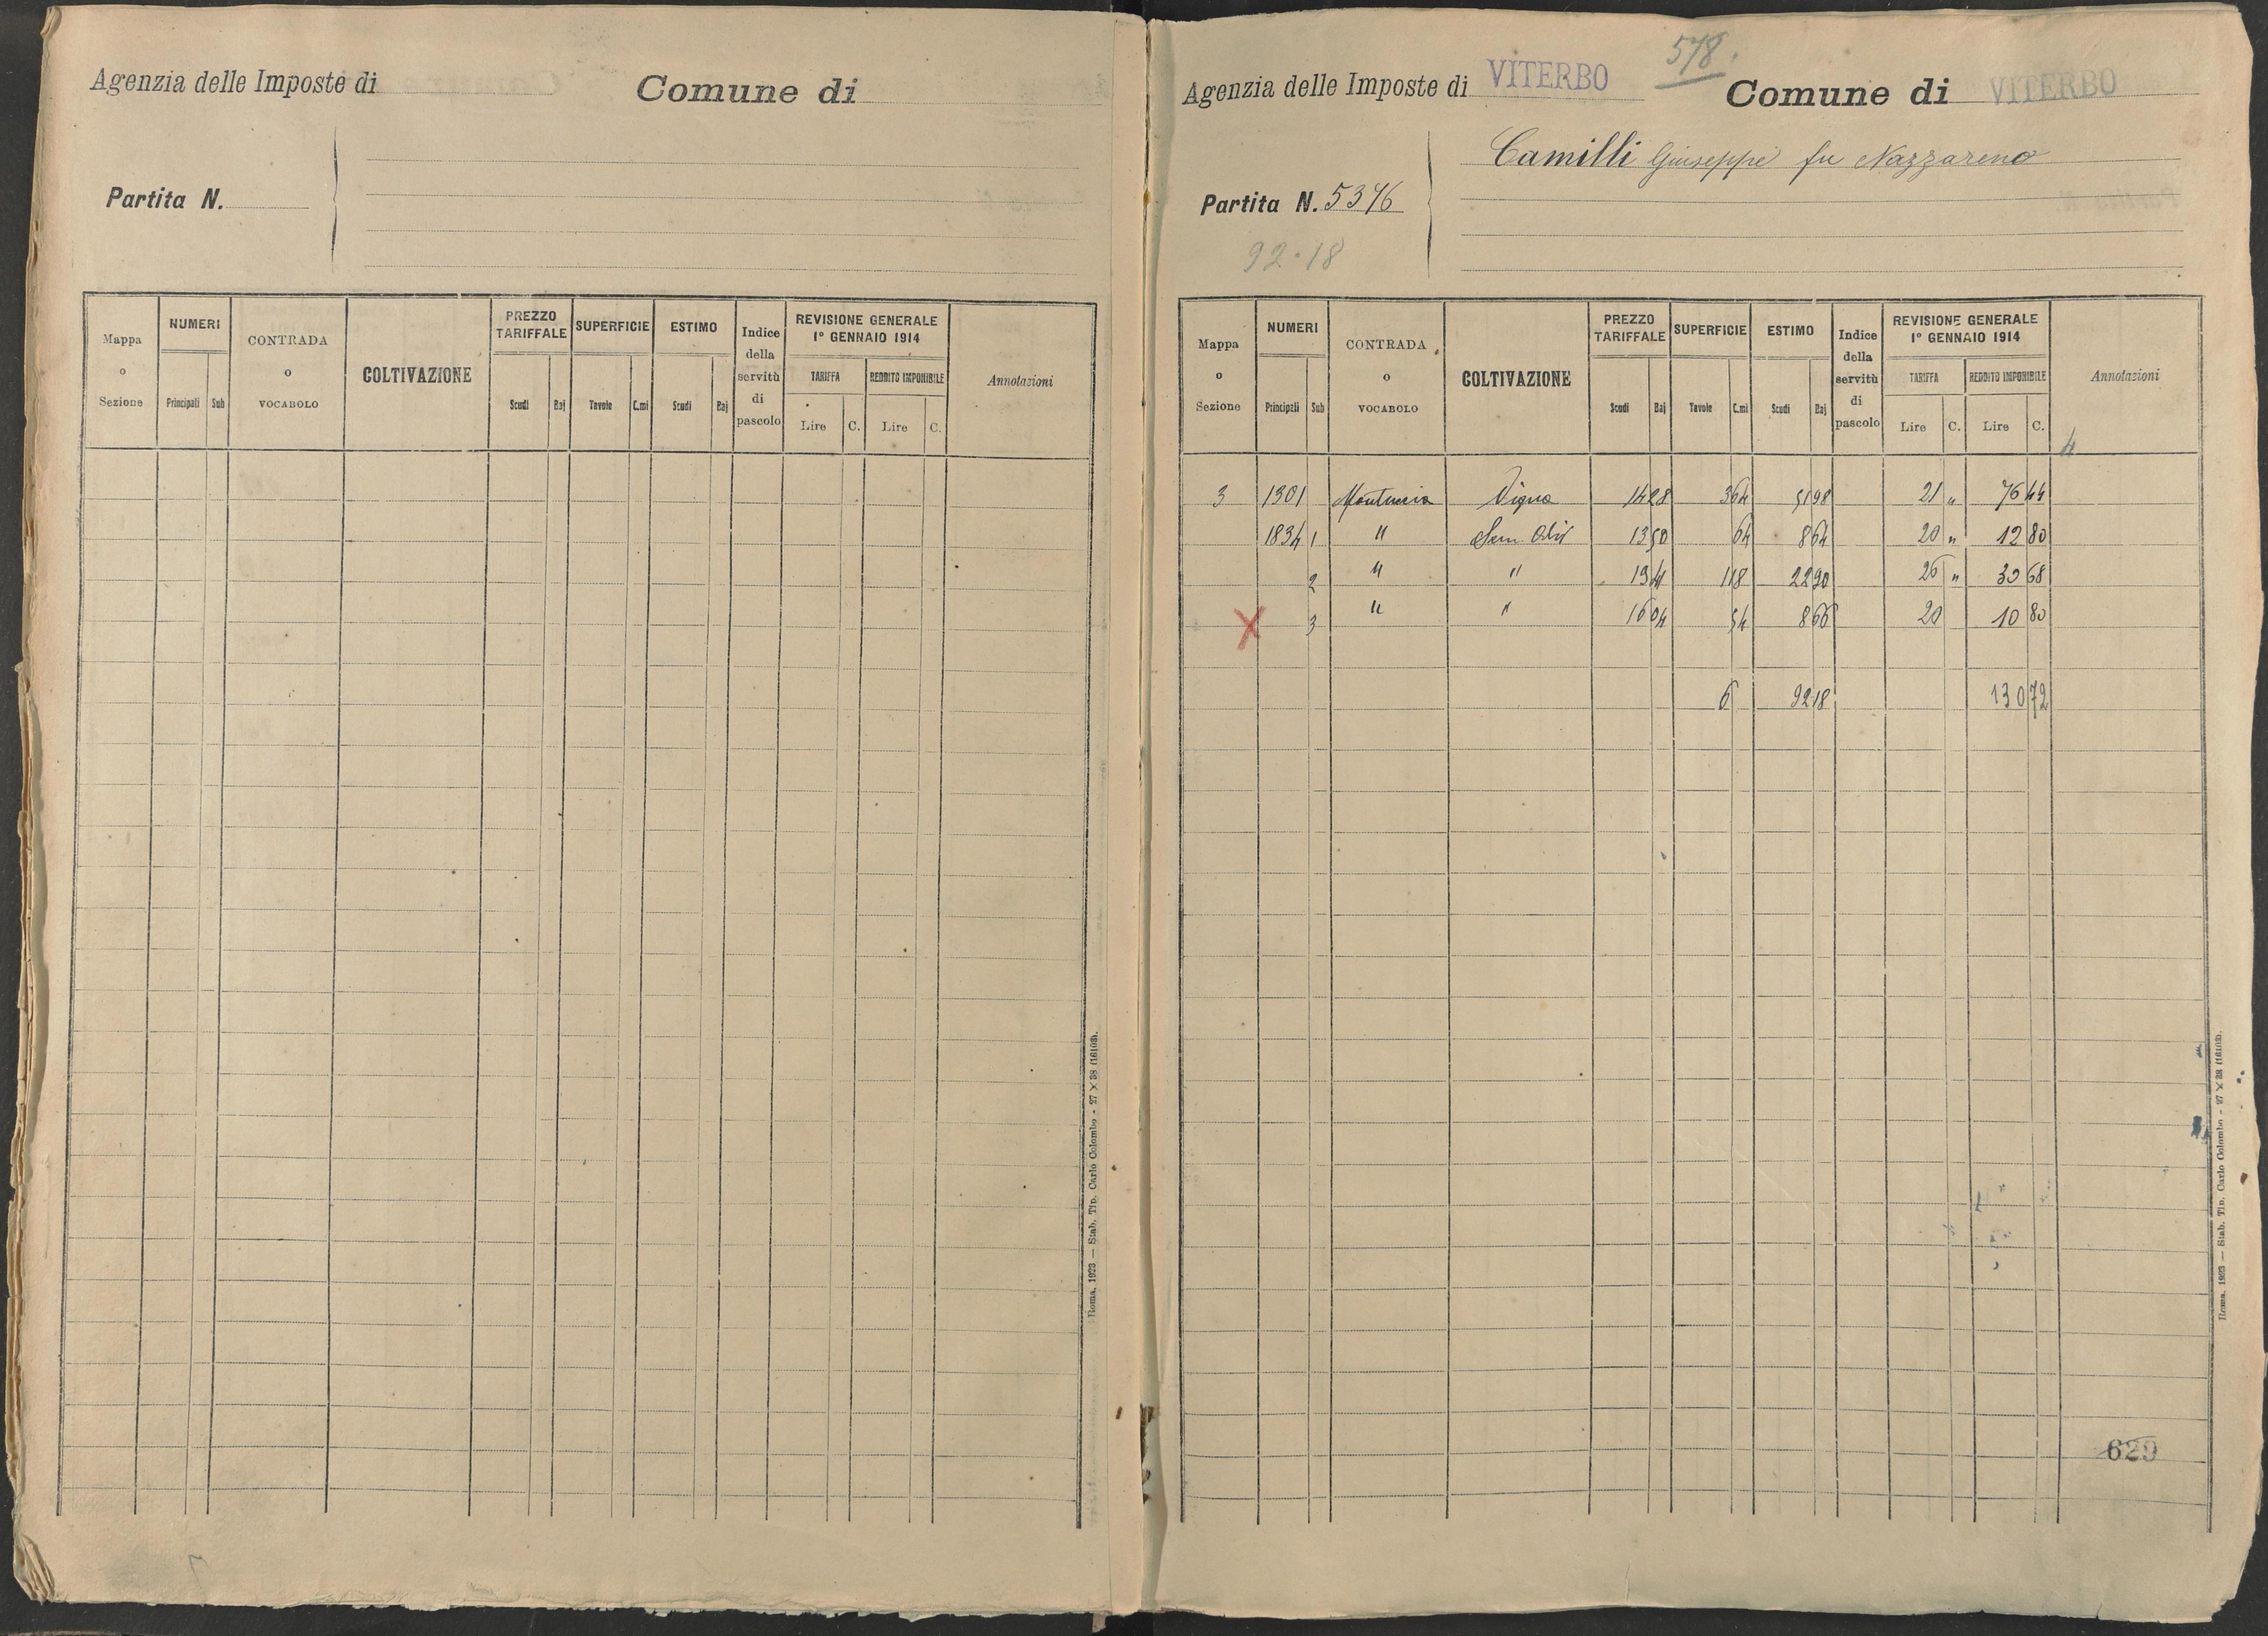 Agenzia delle Imposte di
Comune di
Partita N.
Mappa o Sezione
NUMERI
Principali
Sub
CONTRADA o VOCABOLO
COLTIVAZIONE
PREZZO TARIFFALE
Scudi
Baj
SUPERFICIE
Tavole
C.mi
ESTIMO
Scudi
Baj
Indice della servitù di pascolo
REVISIONE GENERALE 1° GENNAIO 1914
TARIFFA
Lire
C.
REDDITO IMPONIBILE
Lire
C.
Annotazioni
Roma, 1923 — Stab. Tip. Carlo Colombo - 27 × 38 (16103).
578.
Agenzia delle Imposte di VITERBO
Comune di VITERBO
Camilli Giuseppe fu Nazzareno
Partita N. 5376
92.18
Mappa o Sezione
NUMERI
Principali
Sub
CONTRADA o VOCABOLO
COLTIVAZIONE
PREZZO TARIFFALE
Scudi
Baj
SUPERFICIE
Tavole
C.mi
ESTIMO
Scudi
Baj
Indice della servitù di pascolo
REVISIONE GENERALE 1° GENNAIO 1914
TARIFFA
Lire
C.
REDDITO IMPONIBILE
Lire
C.
Annotazioni
3 1301 Vigna 14 28 3 64 51 98 21 " 76 44
1834 1 " Sem. Oliv 13 50 64 8 64 20 " 12 80
2 " " 1 18 22 90 26 " 30 68
X 3 " " 16 04 54 8 66 20 10 80
6 92 18 130 72
629
Roma, 1923 — Stab. Tip. Carlo Colombo - 27 × 38 (16103).